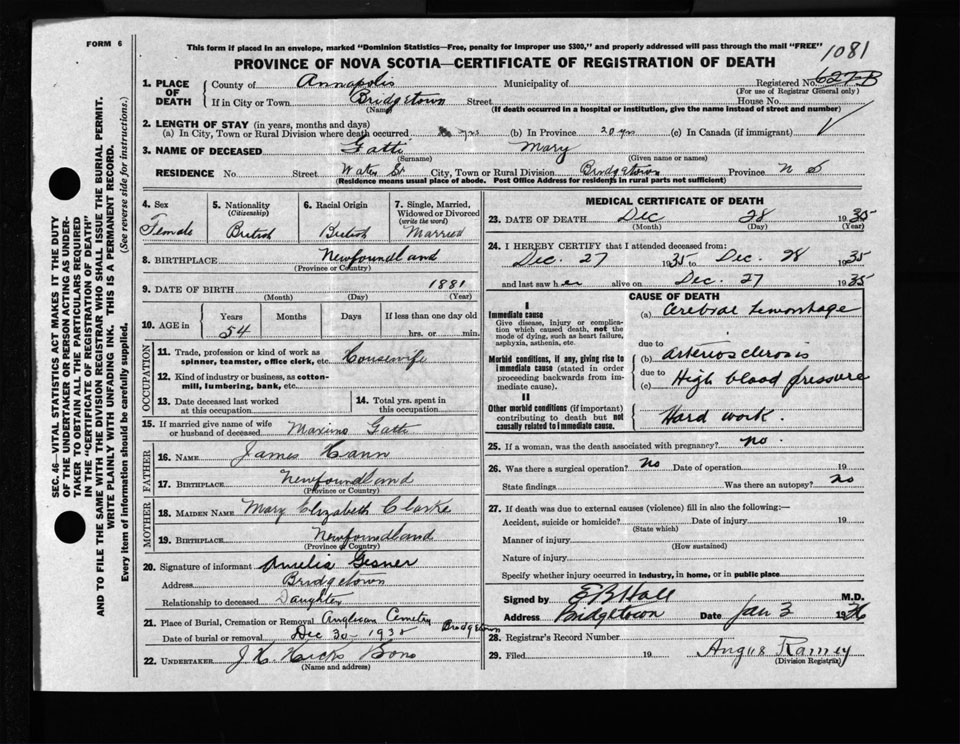 1081
FORM 6
This form if placed in an envelope, marked "Dominion Statistics—Free, penalty for improper use $300," and properly addressed will pass through the mail "FREE"
PROVINCE OF NOVA SCOTIA—CERTIFICATE OF REGISTRATION OF DEATH
SEC. 46—VITAL STATISTICS ACT MAKES IT THE DUTY
OF THE UNDERTAKER OR PERSON ACTING AS UNDER-
TAKER TO OBTAIN ALL THE PARTICULARS REQUIRED
IN THE "CERTIFICATE OF REGISTRATION OF DEATH"
AND TO FILE THE SAME WITH THE DIVISION REGISTRAR WHO SHALL ISSUE THE BURIAL PERMIT.
WRITE PLAINLY WITH UNFADING INK. THIS IS A PERMANENT RECORD.
Every item of information should be carefully supplied. (See reverse side for instructions.)
1. PLACE OF DEATH County of Annapolis Municipality of Registered No. 627-B
(For use of Registrar General only)
If in City or Town Bridgetown Street House No.
(Name) (If death occurred in a hospital or institution, give the name instead of street and number)
2. LENGTH OF STAY (in years, months and days)
(a) In City, Town or Rural Division where death occurred yrs (b) In Province 20 yrs (c) In Canada (if immigrant)
3. NAME OF DECEASED Gatti Mary
(Surname) (Given name or names)
RESIDENCE No. Street Water St City, Town or Rural Division Bridgetown Province N S
(Residence means usual place of abode. Post Office Address for residents in rural parts not sufficient)
4. Sex Female
5. Nationality (Citizenship) British
6. Racial Origin British
7. Single, Married, Widowed or Divorced (write the word) Married
8. BIRTHPLACE Newfoundland
(Province or Country)
9. DATE OF BIRTH 1881
(Month) (Day) (Year)
10. AGE in Years Months Days If less than one day old
54 hrs. or min.
OCCUPATION
11. Trade, profession or kind of work as
spinner, teamster, office clerk, etc. Housewife
12. Kind of industry or business, as cotton-
mill, lumbering, bank, etc.
13. Date deceased last worked
at this occupation
14. Total yrs. spent in
this occupation
15. If married give name of wife
or husband of deceased Maximo Gatti
FATHER
16. NAME James Hann
17. BIRTHPLACE Newfoundland
(Province or Country)
MOTHER
18. MAIDEN NAME Mary Elizabeth Clarke
19. BIRTHPLACE Newfoundland
(Province or Country)
20. Signature of informant Amelia Gesner
Address Bridgetown
Relationship to deceased Daughter
21. Place of Burial, Cremation or Removal Anglican Cemetery Bridgetown
Date of burial or removal Dec 30-1935
22. UNDERTAKER J. H. Hicks Sons
(Name and address)
MEDICAL CERTIFICATE OF DEATH
23. DATE OF DEATH Dec 28 1935
(Month) (Day) (Year)
24. I HEREBY CERTIFY that I attended deceased from:
Dec. 27 1935 to Dec. 28 1935
and last saw her alive on Dec. 27 1935
I
Immediate cause
Give disease, injury or complica-
tion which caused death, not the
mode of dying, such as heart failure,
asphyxia, asthenia, etc.
Morbid conditions, if any, giving rise to
immediate cause (stated in order
proceeding backwards from im-
mediate cause).
II
Other morbid conditions (if important)
contributing to death but not
causally related to immediate cause.
CAUSE OF DEATH
(a) Cerebral hemorrhage
due to
(b) Arteriosclerosis
due to
(c) High blood pressure
Hard work.
25. If a woman, was the death associated with pregnancy? no.
26. Was there a surgical operation? No Date of operation 19
State findings Was there an autopsy? no
27. If death was due to external causes (violence) fill in also the following:—
Accident, suicide or homicide? Date of injury 19
(State which)
Manner of injury
(How sustained)
Nature of injury
Specify whether injury occurred in industry, in home, or in public place
Signed by E B Hall M.D.
Address Bridgetown Date Jan 3 1936
28. Registrar's Record Number
29. Filed 19 Angus Ramey
(Division Registrar)